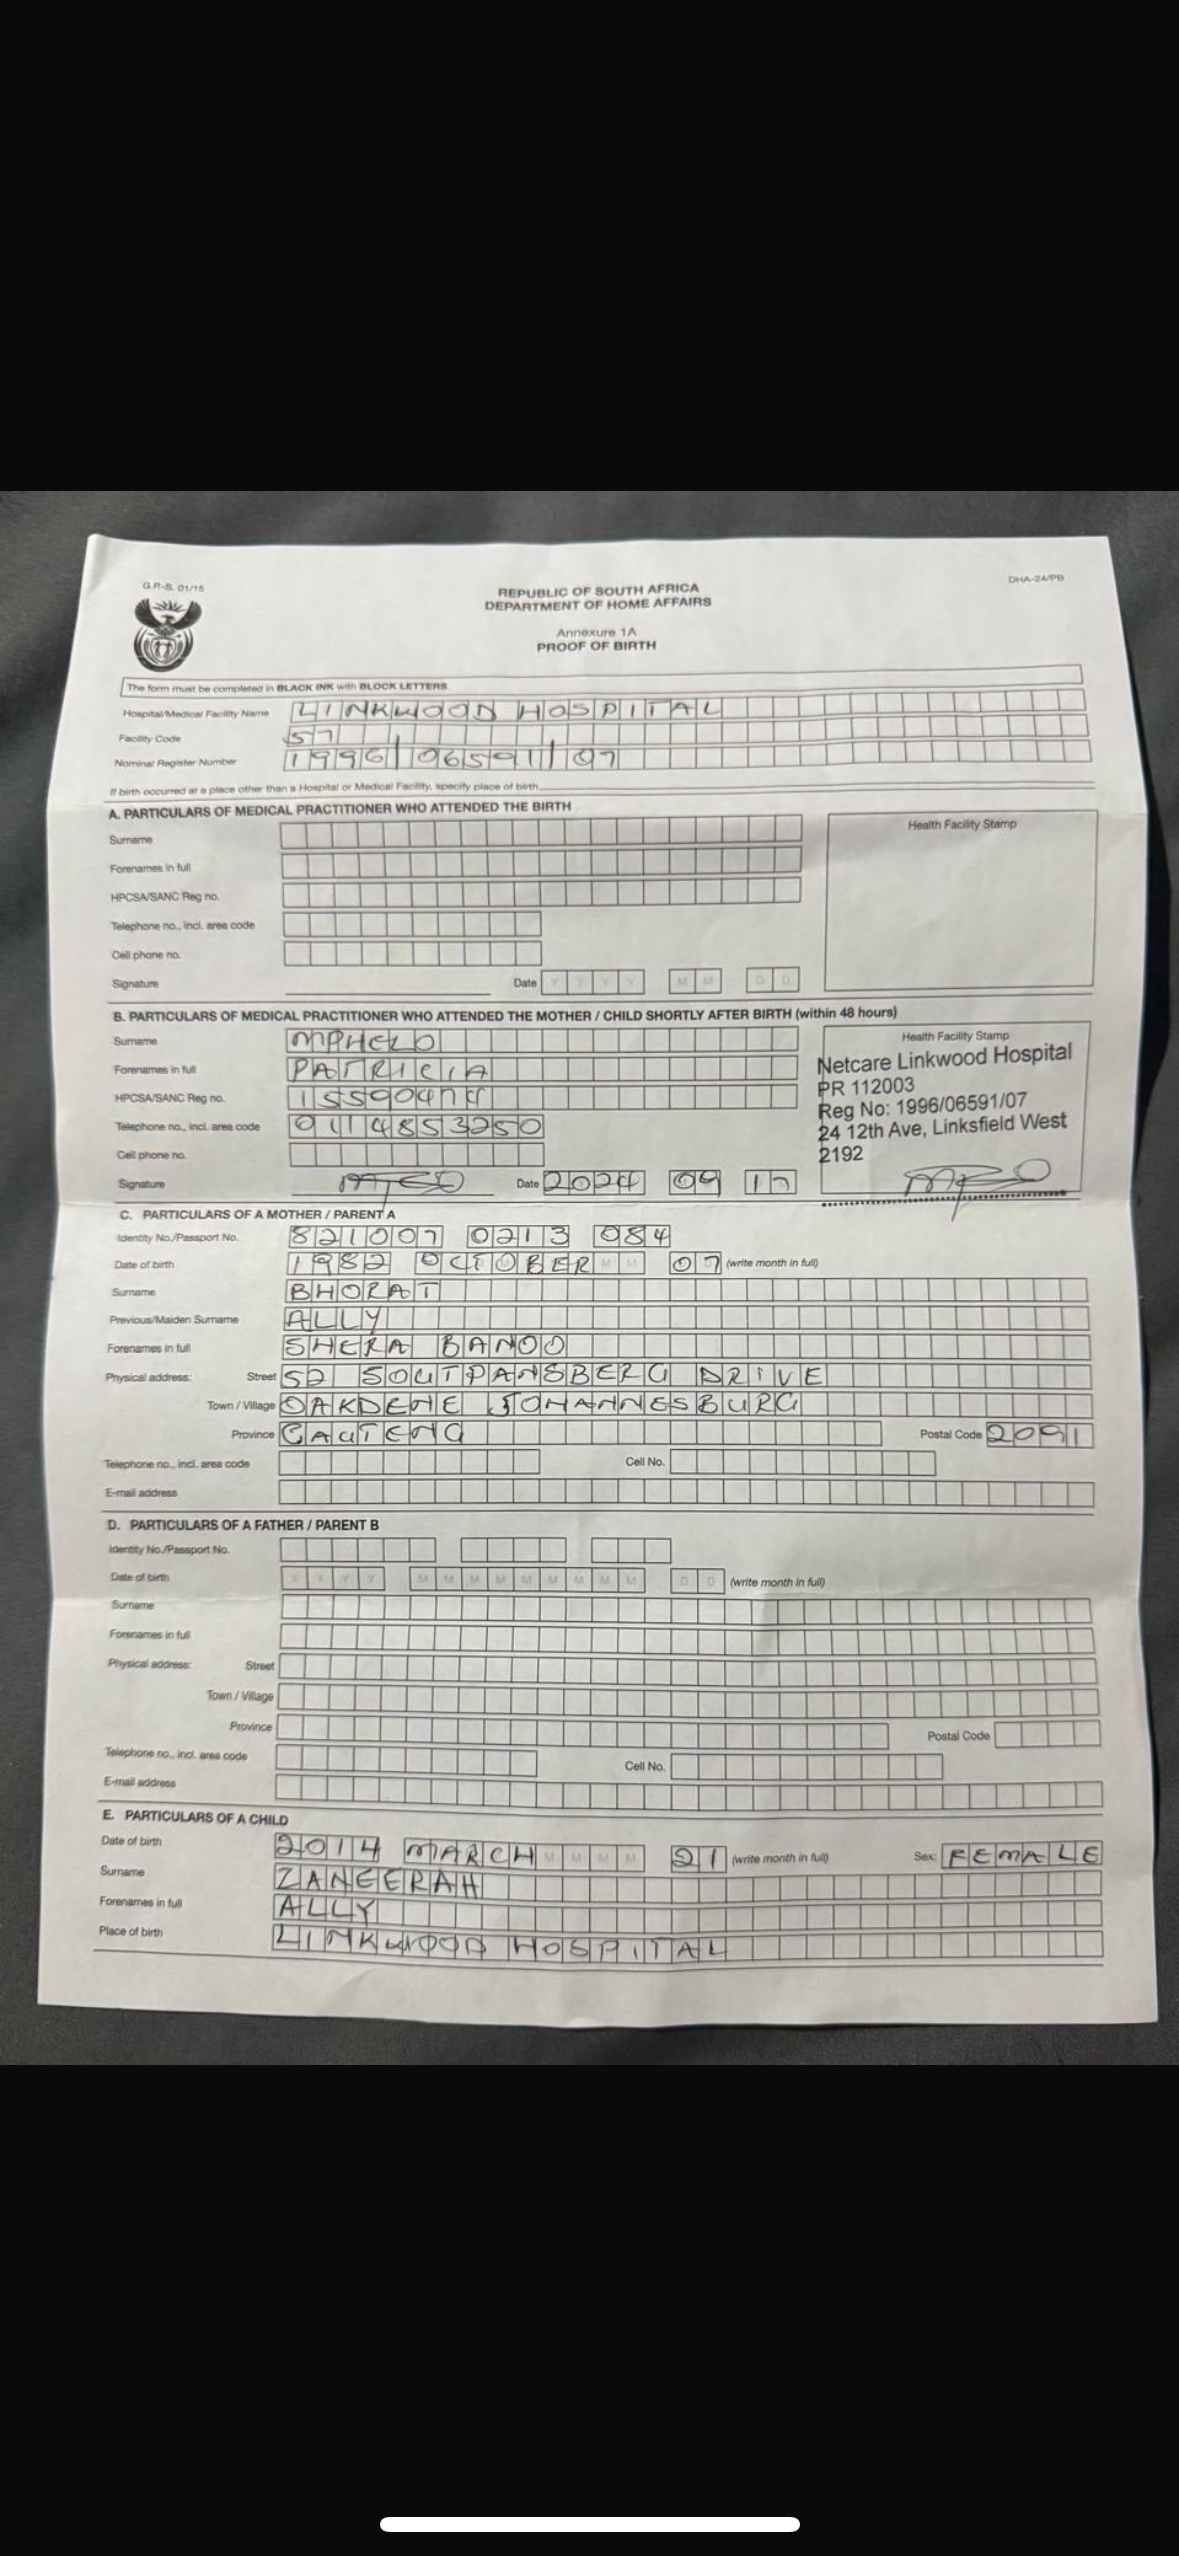 G.P.-S. 01/15
DHA-24/PB
REPUBLIC OF SOUTH AFRICA
DEPARTMENT OF HOME AFFAIRS
Annexure 1A
PROOF OF BIRTH
The form must be completed in BLACK INK with BLOCK LETTERS
Hospital/Medical Facility Name LINKWOOD HOSPITAL
Facility Code 57
Nominal Register Number 1996/06591/07
If birth occurred at a place other than a Hospital or Medical Facility, specify place of birth
A. PARTICULARS OF MEDICAL PRACTITIONER WHO ATTENDED THE BIRTH
Health Facility Stamp
Surname
Forenames in full
HPCSA/SANC Reg no.
Telephone no., incl. area code
Cell phone no.
Signature Date Y Y Y Y M M D D
B. PARTICULARS OF MEDICAL PRACTITIONER WHO ATTENDED THE MOTHER / CHILD SHORTLY AFTER BIRTH (within 48 hours)
Surname MPHELO
Forenames in full PATRICIA
HPCSA/SANC Reg no.
Telephone no., incl. area code 0114853250
Cell phone no.
Signature Date 2024 09 17
Health Facility Stamp
Netcare Linkwood Hospital
PR 112003
Reg No: 1996/06591/07
24 12th Ave, Linksfield West
2192
C. PARTICULARS OF A MOTHER / PARENT A
Identity No./Passport No. 821007 0213 084
Date of birth 1982 OCTOBER M M 07 (write month in full)
Surname BHORAT
Previous/Maiden Surname ALLY
Forenames in full SHERA BANOO
Physical address: Street 52 SOUTPANSBERG DRIVE
Town / Village OAKDENE JOHANNESBURG
Province GAUTENG Postal Code 2091
Telephone no., incl. area code Cell No.
E-mail address
D. PARTICULARS OF A FATHER / PARENT B
Identity No./Passport No.
Date of birth Y Y Y Y M M M M M M M M M D D (write month in full)
Surname
Forenames in full
Physical address: Street
Town / Village
Province Postal Code
Telephone no., incl. area code Cell No.
E-mail address
E. PARTICULARS OF A CHILD
Date of birth 2014 MARCH M M M M 21 (write month in full) Sex: FEMALE
Surname ZANEERAH
Forenames in full ALLY
Place of birth LINKWOOD HOSPITAL